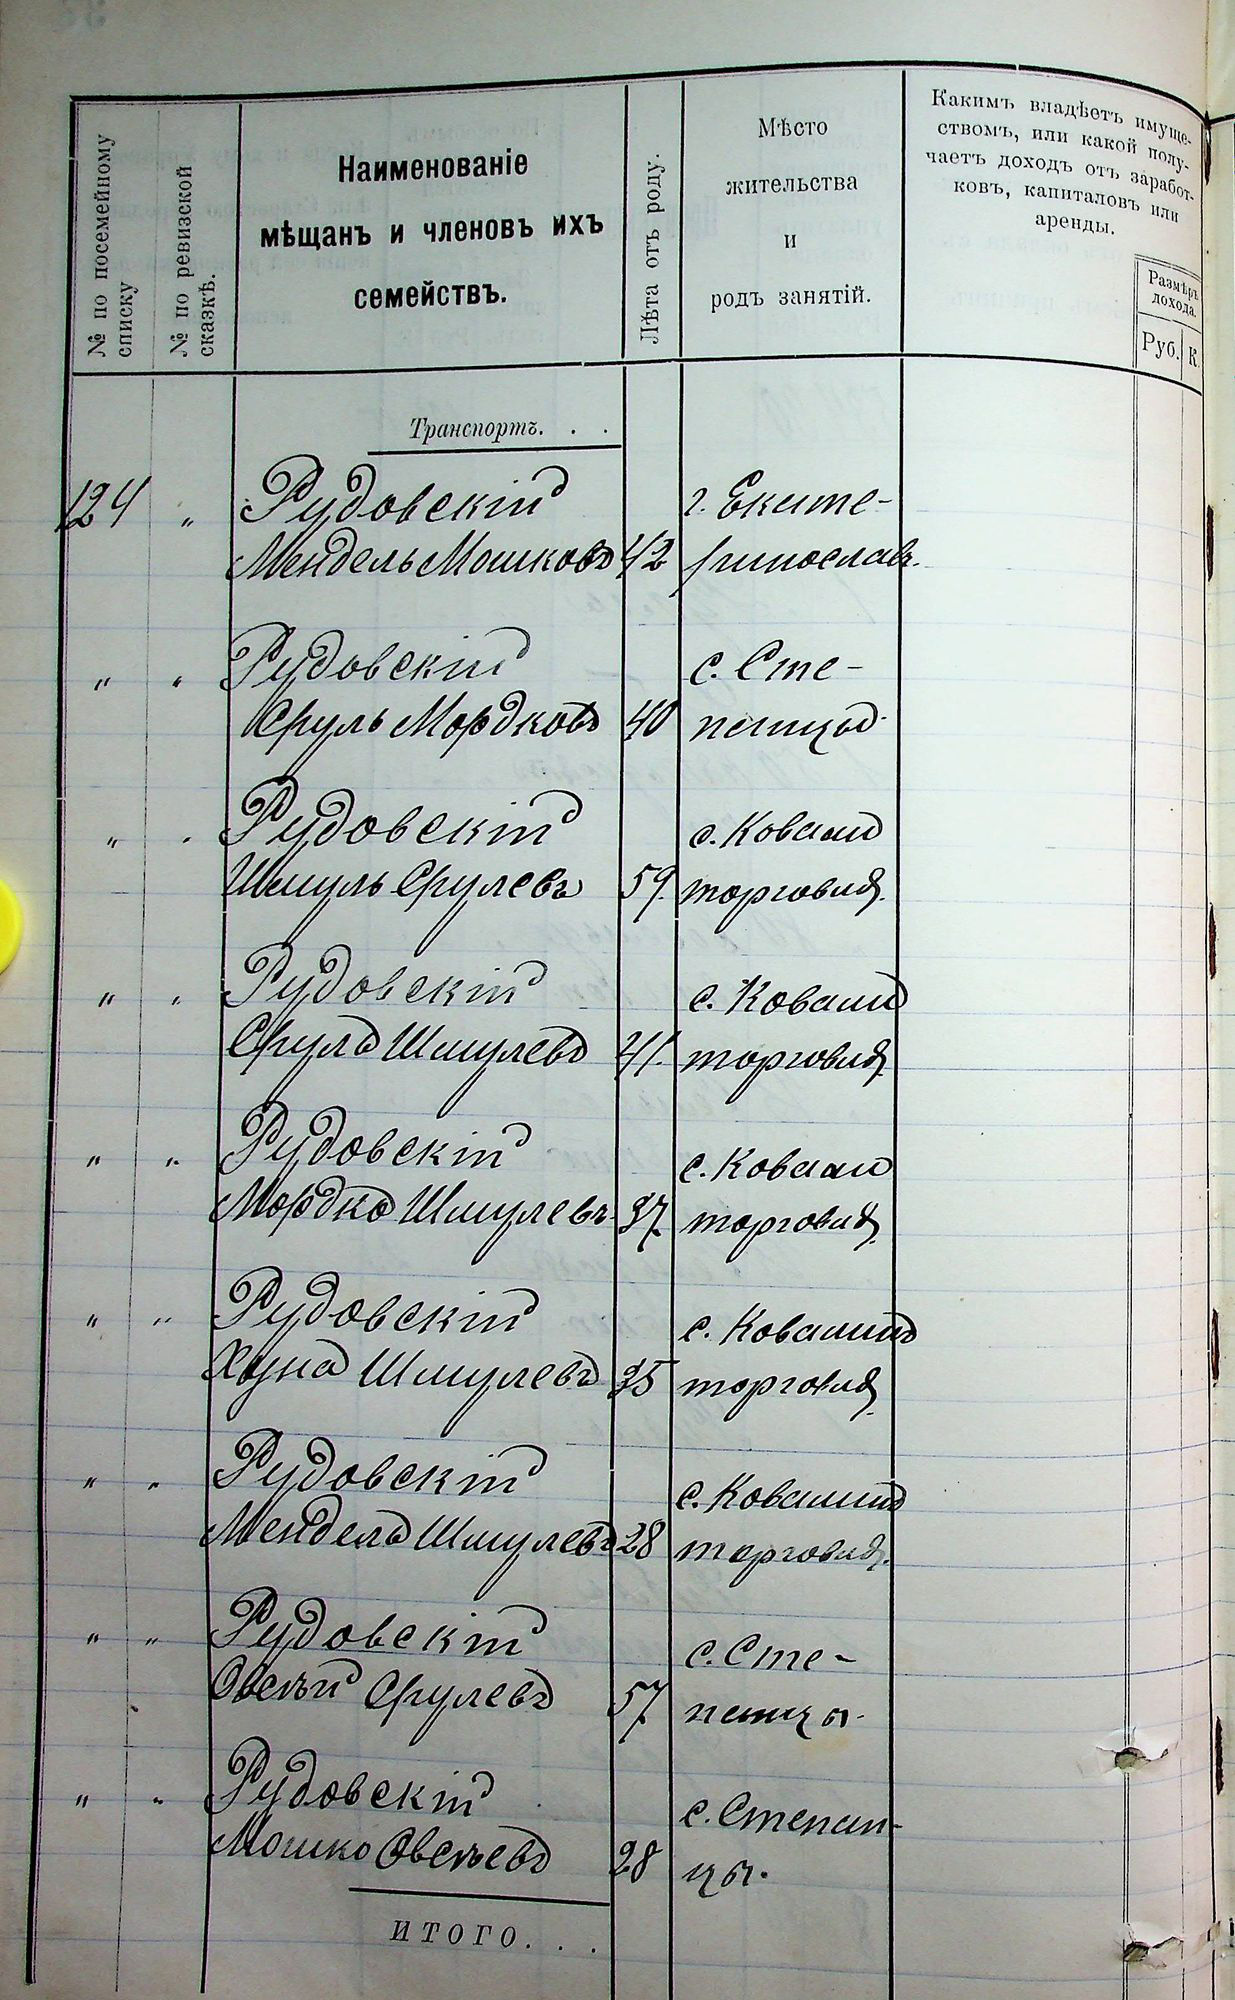 № по посемейному
списку
№ по ревизской
сказкѣ.
Наименованіе
мѣщанъ и членовъ ихъ
семействъ.
Лѣта отъ роду.
Мѣсто
жительства
и
родъ занятій.
Какимъ владѣетъ имуще-
ствомъ, или какой полу-
чаетъ доходъ отъ заработ-
ковъ, капиталовъ или
аренды.
Размѣръ
дохода.
Руб. К.
Транспортъ. . .
124 " Рудовскій г. Екате-
Мендель Мошковъ 42 ринославъ.
" " Рудовскій с. Сте-
Сруль Мордковъ 40 панцы.
" " Рудовскій с. Ковали
Шмуль Срулевъ 59. торговля.
" " Рудовскій с. Ковали
Сруль Шмулевъ 41. торговля.
" " Рудовскій с. Ковали
Мордко Шмулевъ 37. торговля.
" " Рудовскій
Хуна Шмулевъ 35 торговля.
" " Рудовскій
Мендель Шмулевъ 28 торговля.
" " Рудовскій с. Сте-
Овсѣй Срулевъ 57. панцы.
" " Рудовскій с. Степан-
Мошко Овсѣевъ 28 цы.
ИТОГО. . .